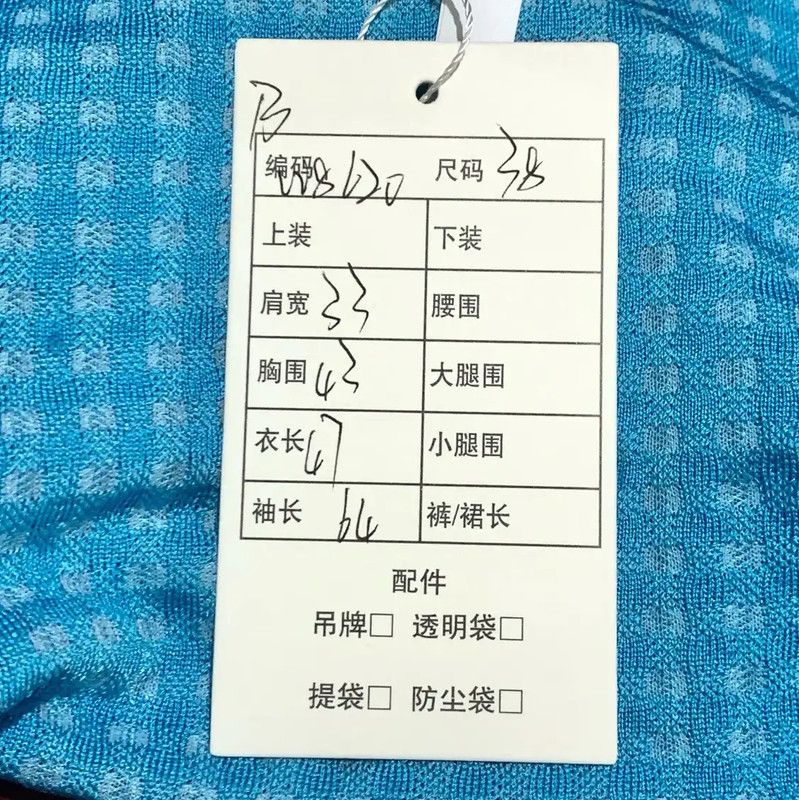 B
编码 W8620 尺码 38
上装 下装
肩宽 33 腰围
胸围 43 大腿围
衣长 47 小腿围
袖长 64 裤/裙长
配件
吊牌□ 透明袋□
提袋□ 防尘袋□